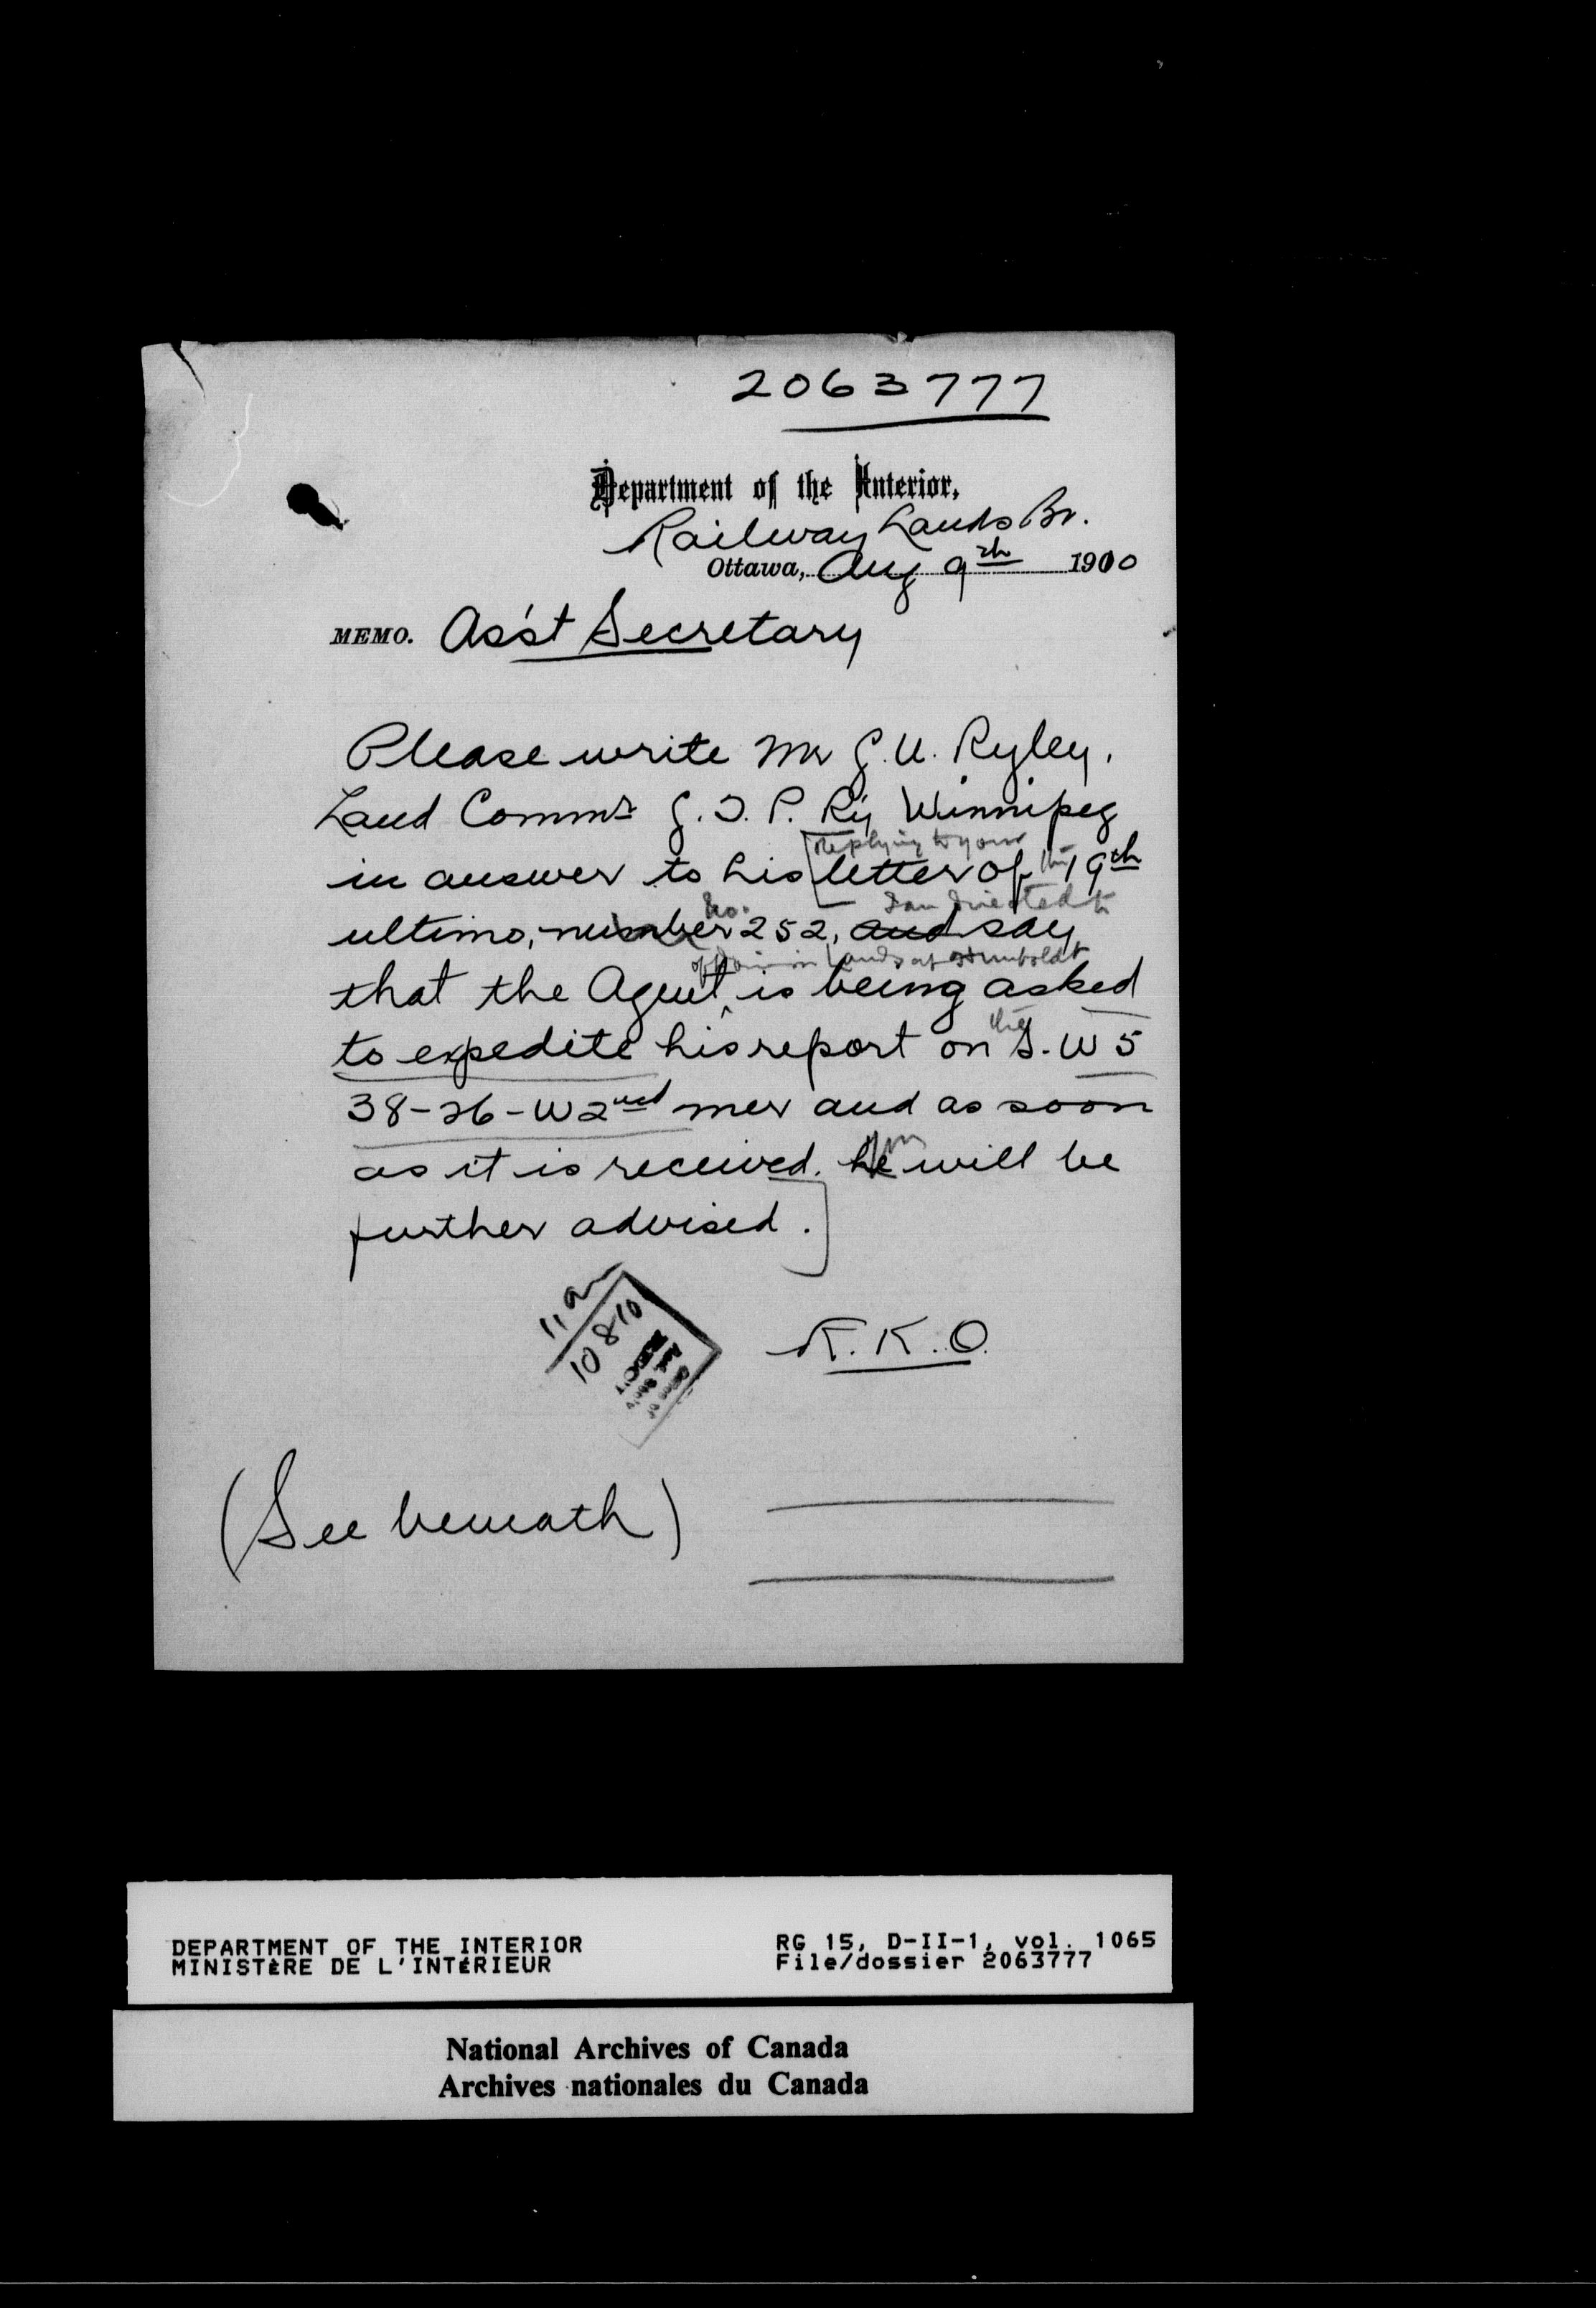 2063777
Department of the Interior,
Railway Lands Br.
Ottawa, Aug 9th 1910
MEMO. Ass't Secretary
Please write Mr G. U. Ryley.
Land Commr G. T. P. Ry Winnipeg
Replying to your
in answer to his [letter of the 19th
No. I am directed to
ultimo, number 252, and say
of Dominion Lands at Humboldt
that the Agent ^ is being asked
the
to expedite his report on S. W 5
38-26-W2nd mer and as soon
you
as it is received. he will be
further advised.]
11 a
10 8 10
R. K. O.
(See beneath)
DEPARTMENT OF THE INTERIOR
MINISTÈRE DE L'INTÉRIEUR
RG 15, D-II-1, vol. 1065
File/dossier 2063777
National Archives of Canada
Archives nationales du Canada